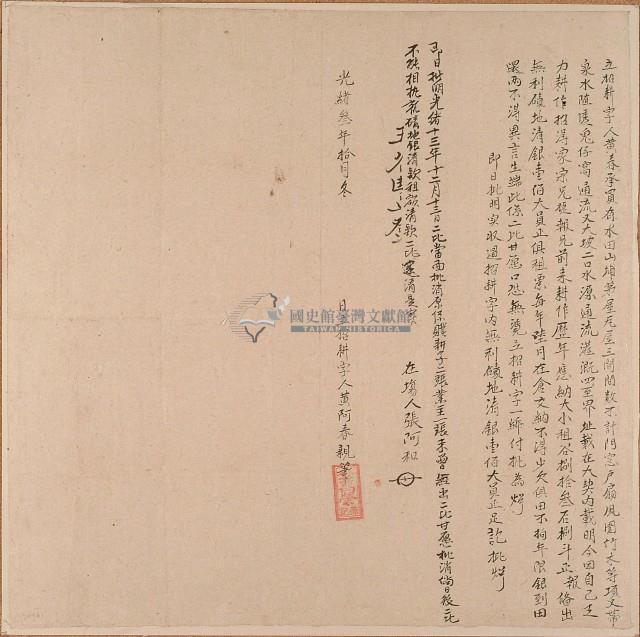 立招耕字人黃春承買有水田山埔茅屋瓦屋三間間數不計門窓戶扇風圍竹木等項又帶
泉水陰溝兔仔窩通流又大坡二口水源通流灌溉四至界址載在大契內載明今因自己乏
力耕作招得家宗兄從報兄前来耕作歷年應納大小租谷捌拾叁石捌斗正報偹出
無利磧地清銀壹佰大員正俱租票每年陸月在倉交納不得少欠俱田不拘年限銀到田
還兩不得異言生端此係二比甘愿口恐無憑立招耕字一紙付批為炤
即日批明实收過招耕字內無利磧地清銀壹佰大員正足訖批炤
即日批明光緒十三年十二月十三日二比當面批消原保賤耕字二張業主一張未曾繳出二比甘愿批消倘日後二比
不能相执茲磧地銀清款租額清款二比還清是实
在塲人張阿和
光緒叁年拾月冬
日立招耕字人黃阿春親筆
國史館臺灣文獻館
TAIWAN HISTORICA